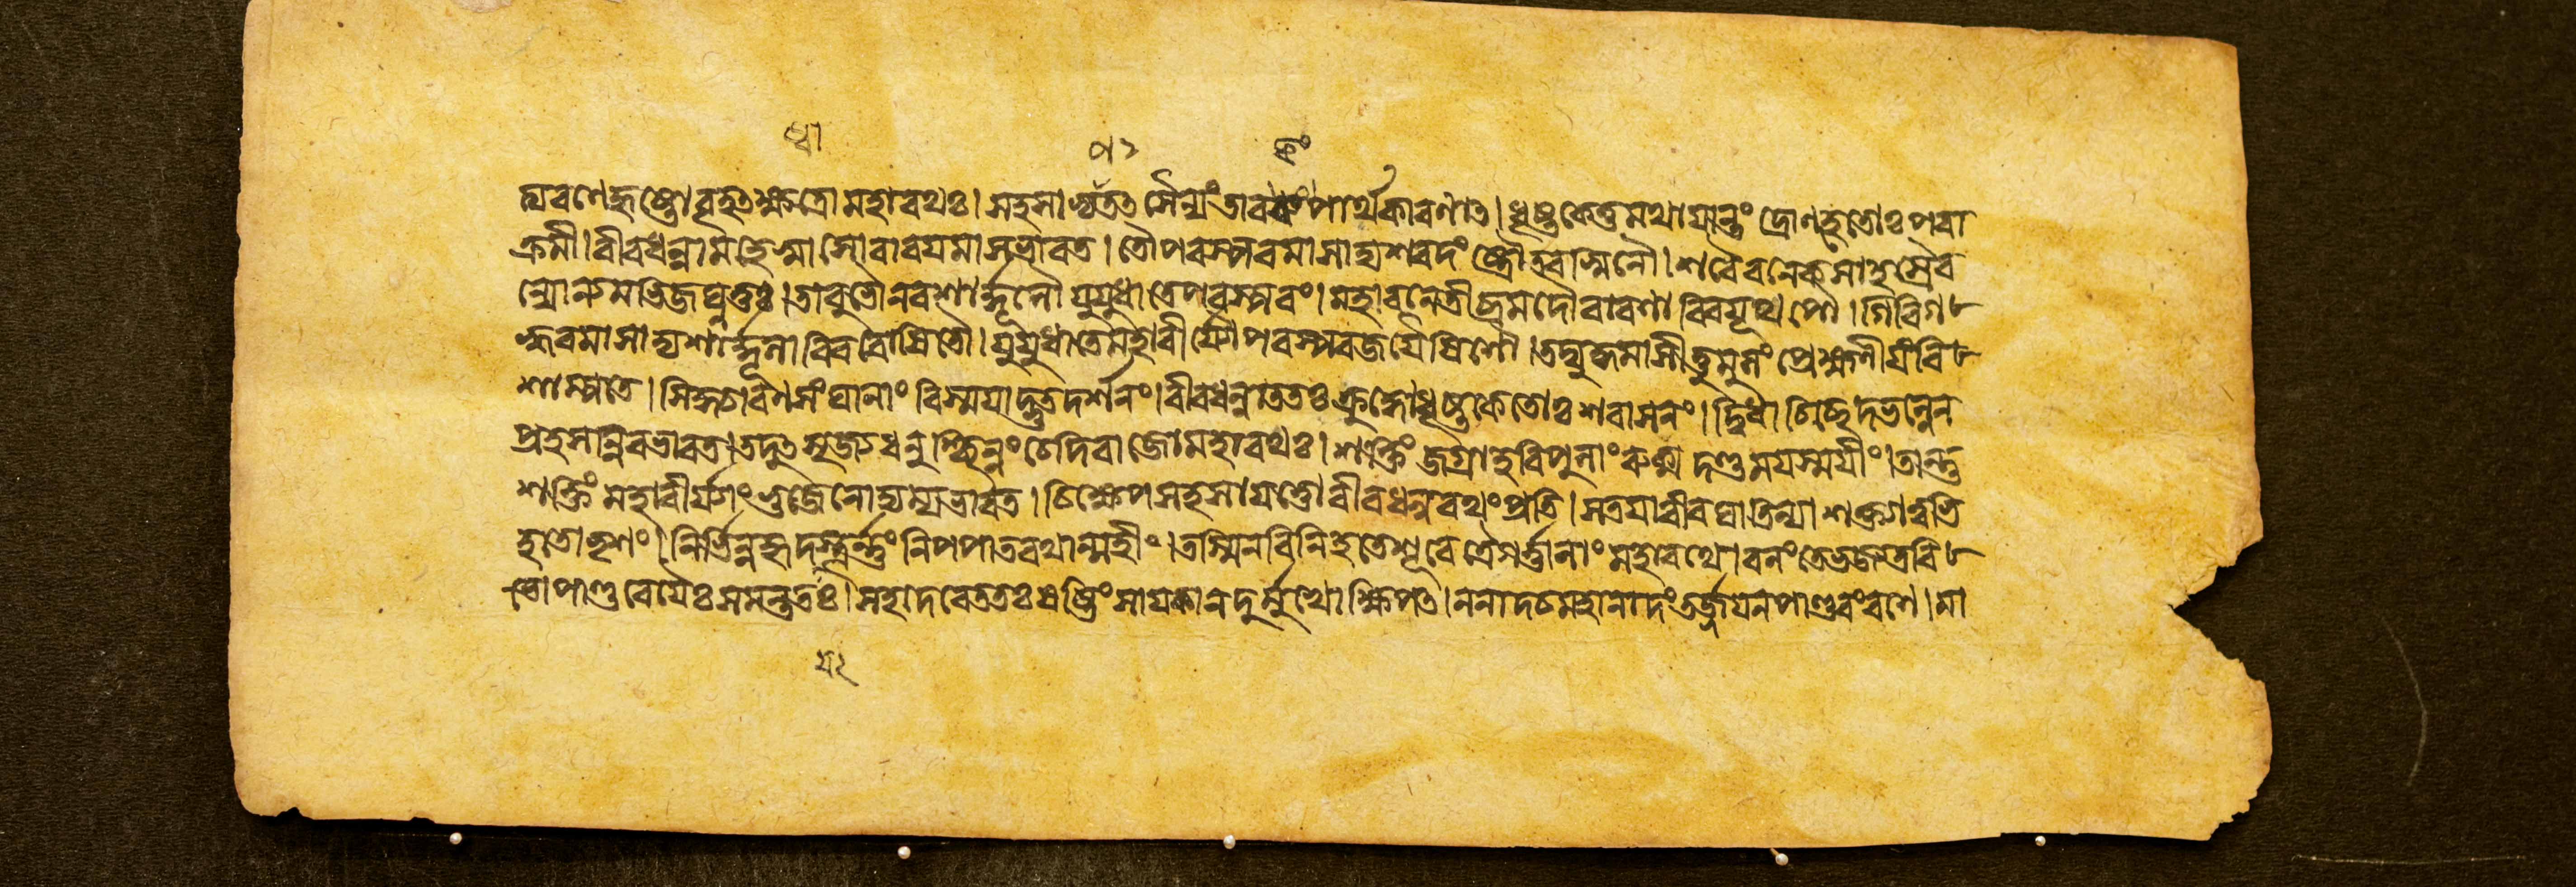 ধ্বা
কং
রণে হৃষ্টো বৃহৎক্ষত্রো মহারথঃ। সহসাভ্যপতৎ সৈন্যং তাবকং পার্থকারণাৎ। ধৃষ্টকেতুমথায়ান্তং দ্রোণহেতোঃ পরা
ক্রমী। বীরধন্বা মহেষ্বাসো বারয়মাস ভারত। তৌ পরস্পরমাসাদ্য শরদংষ্ট্রৌ তরস্বিনৌ। শরৈরনেকসাহস্রৈর
ন্যোন্যমভিজঘ্নতুঃ। তাবুভৌ নরশার্দ্দূলৌ যুযুধাতে পরস্পরং। মহাবনে তীব্রমদৌ বারণাবিব যূথপৌ। গিরিগ
হ্বরমাসাদ্য শার্দ্দূলাবিব রোষিতৌ। যুযুধাতে মহাবীর্যৌ পরস্পরজয়ৈষিণৌ। তদ্যুদ্ধমাসীত্তুমুলং প্রেক্ষণীয়ং বি
শাম্পতে। সিদ্ধচারণসংঘানাং বিস্ময়াদ্ভুতদর্শনং। বীরধন্বা ততঃ ক্রুদ্ধো ধৃষ্টকেতোঃ শরাসনং। দ্বিধা চিচ্ছেদ ভল্লেন
প্রহসন্নিব ভারত। তদুৎসৃজ্য ধনুশ্ছিন্নং চেদিরাজো মহারথঃ। শক্তিং জগ্রাহ বিপুলাং রুক্মদণ্ডময়স্ময়ীং। তান্তু
শক্তিং মহাবীর্যাং ভুজেনোদ্যম্য ভারত। চিক্ষেপ সহসা যত্তো বীরধন্বরথং প্রতি। স তয়া বীরঘাতিন্যা শক্ত্যা ত্বভি
হতো ভৃশং। নির্ভিন্নহৃদয়স্তূর্ণ্ণং নিপপাত রথান্মহীং। তস্মিন বিনিহতে শূরে ত্রিগর্ত্তানাং মহারথে। বলং তেভজ্যত বি
ভো পাণ্ডবেয়ৈঃ সমন্ততঃ। সহদেবে ততঃ ষষ্টিং সায়কান দুর্ম্মুখোক্ষিপৎ। ননাদ চ মহানাদং তর্জ্জয়ন পাণ্ডবং রণে। মা